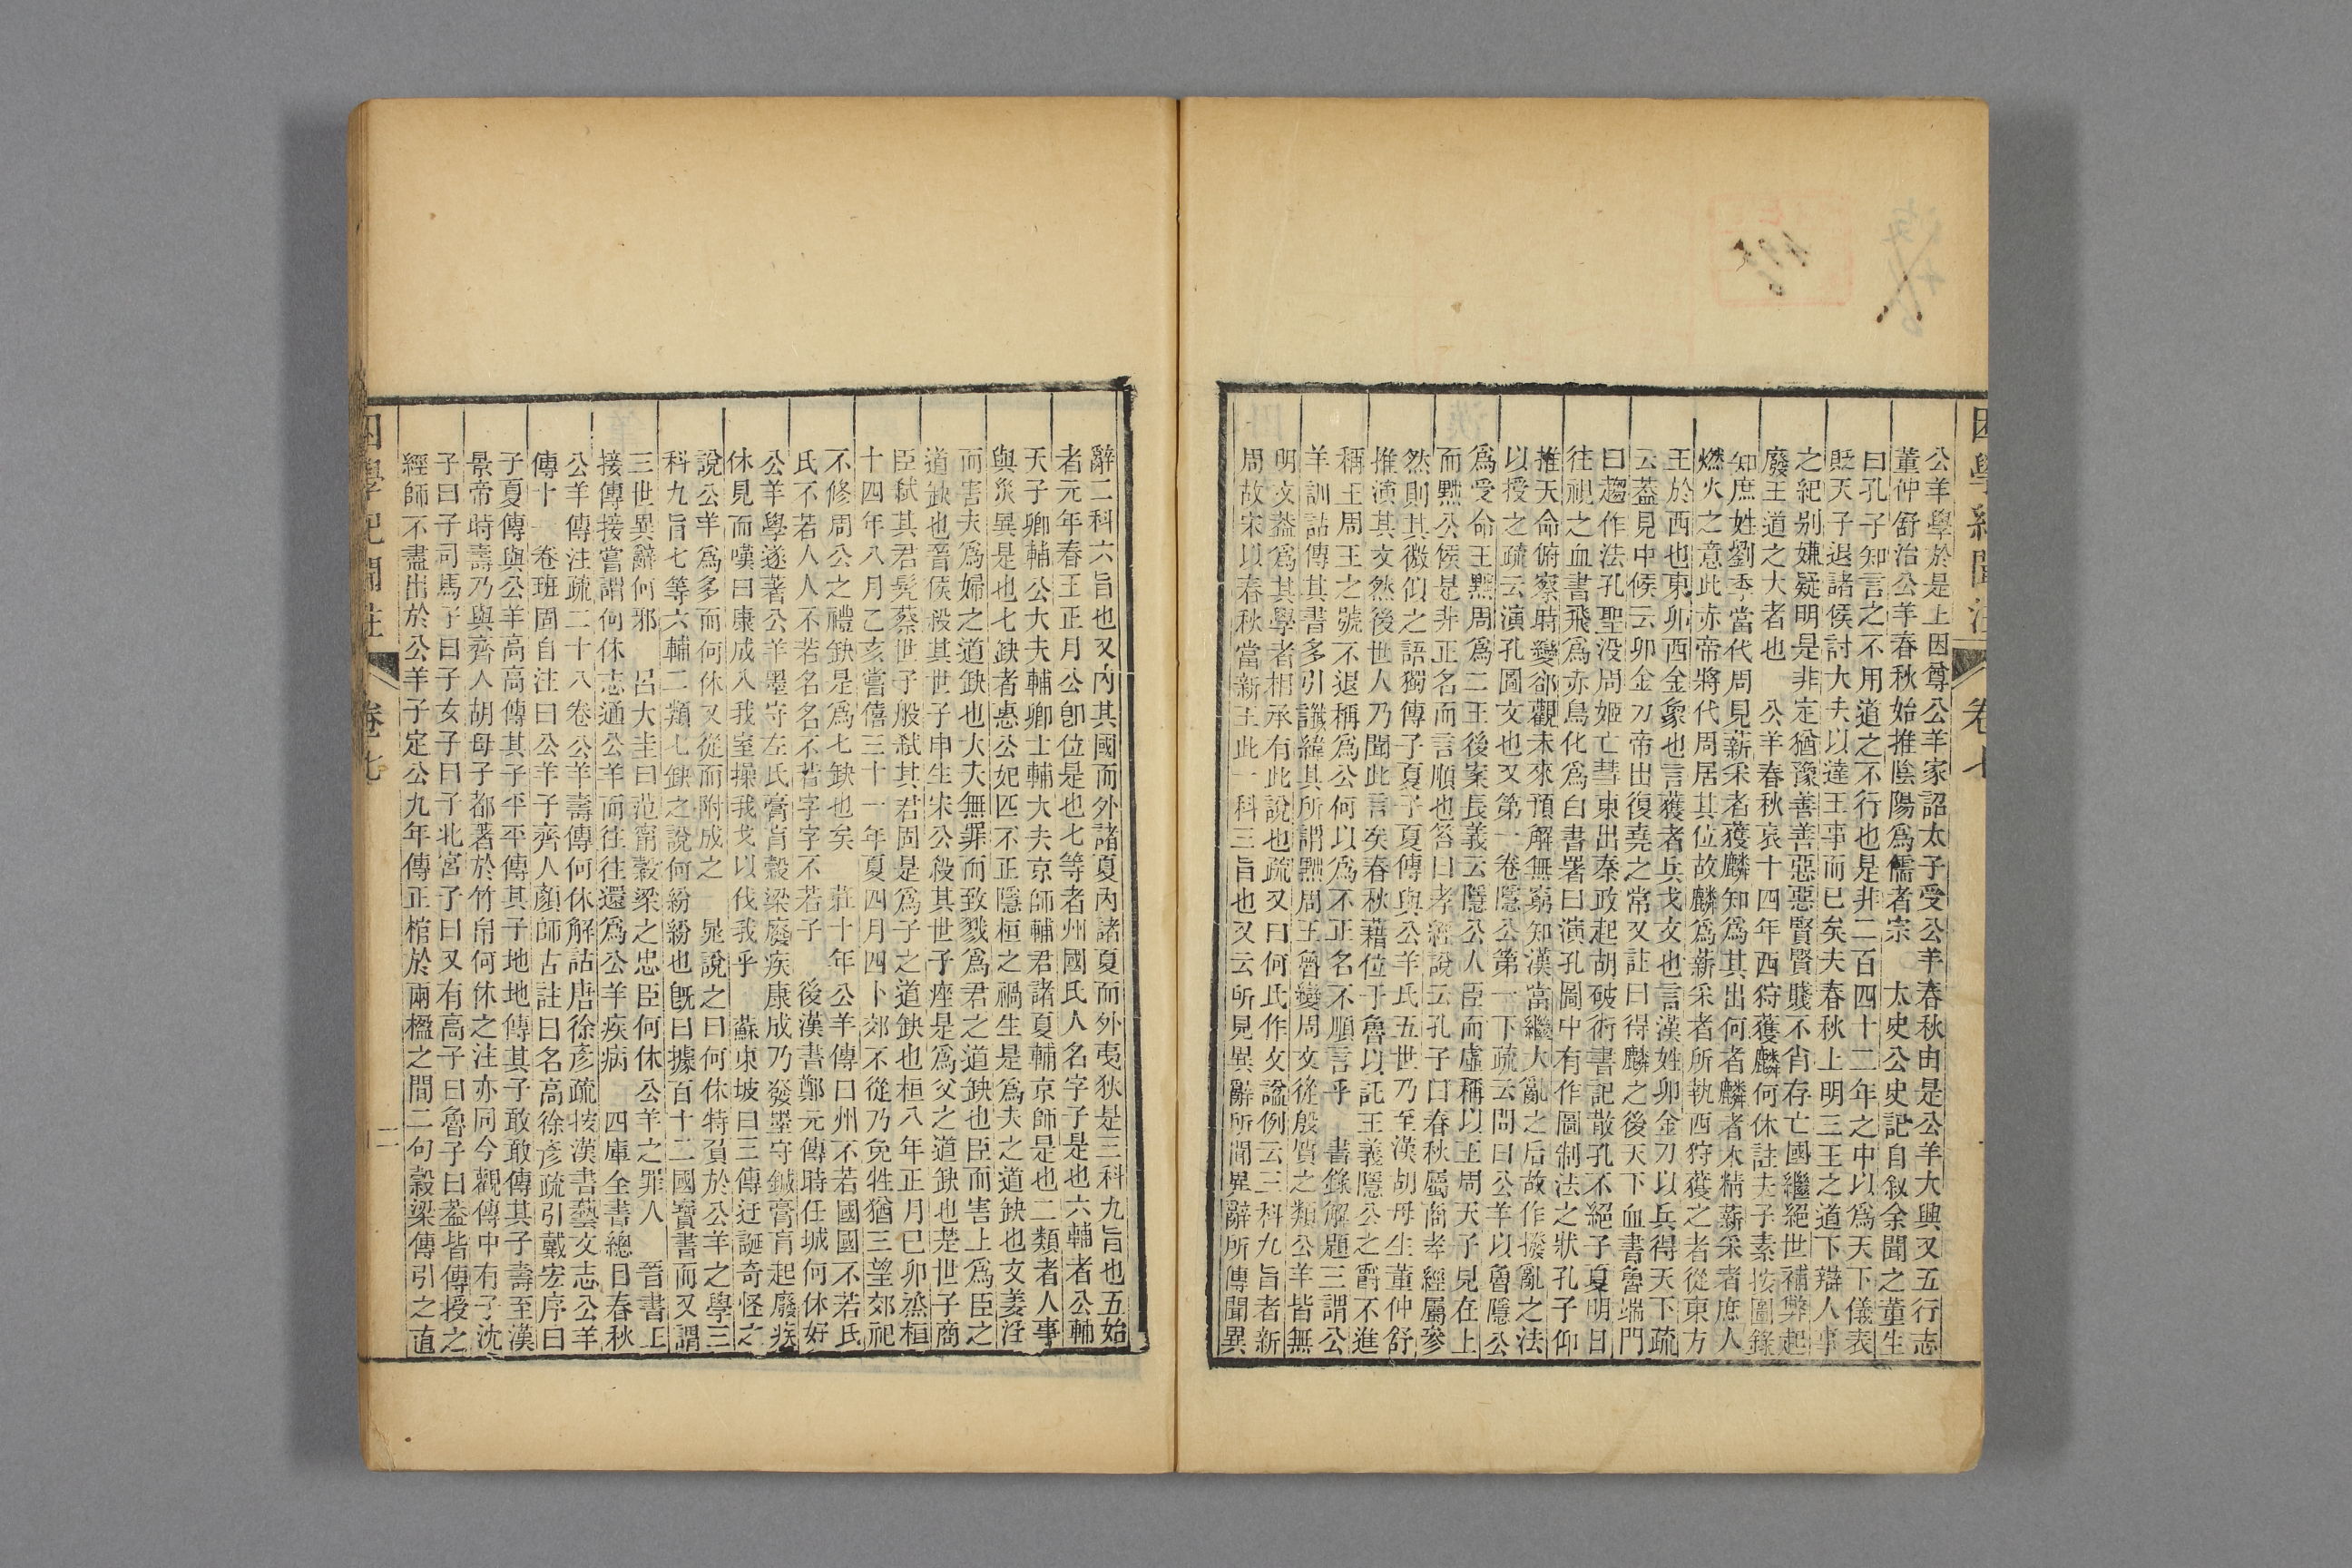 公羊學於是上因尊公羊家詔太子受公羊春秋由是公羊大興又五行志
董仲舒治公羊春秋始推陰陽爲儒者宗　太史公史記自叙余聞之董生
曰孔子知言之不用道之不行也是非二百四十二年之中以爲天下儀表
貶天子退諸侯討大夫以達王事而已矣夫春秋上明三王之道下辯人事
之紀别嫌疑明是非定猶豫善善惡惡賢賢賤不肖存亡國繼絕世補弊起
廢王道之大者也　公羊春秋哀十四年西狩獲麟何休註夫子素按圖錄
知庶姓劉季當代周見薪采者獲麟知爲其出何者麟者木精薪采者庶人
燃火之意此赤帝將代周居其位故麟爲薪采者所執西狩獲之者從東方
王於西也東卯西金象也言獲者兵戈文也言漢姓卯金刀以兵得天下疏
云葢見中候云卯金刀帝出復堯之常又註曰得麟之後天下血書魯端門
曰趨作法孔聖没周姬亡彗東出秦政起胡破術書記散孔不絕子夏明日
往視之血書飛爲赤鳥化爲白書署曰演孔圖中有作圖制法之狀孔子仰
推天命俯察時變郤觀未來預解無窮知漢當繼大亂之后故作撥亂之法
以授之疏云演孔圖文也又第一卷隱公第一下疏云問曰公羊以魯隱公
爲受命王黜周爲二王後案長義云隱公人臣而虛稱以王周天子見在上
而黜公侯是非正名而言順也答曰孝經說云孔子曰春秋屬商孝經屬參
然則其微似之語獨傳子夏子夏傳與公羊氏五世乃至漢胡母生董仲舒
推演其文然後世人乃聞此言矣春秋藉位于魯以託王義隱公之爵不進
稱王周王之號不退稱爲公何以爲不正名不順言乎　書錄解題三謂公
羊訓詁傳其書多引讖緯其所謂黜周王魯變周文從殷質之類公羊皆無
明文葢爲其學者相承有此說也疏又曰何氏作文謚例云三科九旨者新
周故宋以春秋當新王此一科三旨也又云所見異辭所聞異辭所傳聞異
辭二科六旨也又內其國而外諸夏內諸夏而外夷狄是三科九旨也五始
者元年春王正月公卽位是也七等者州國氏人名字子是也六輔者公輔
天子卿輔公大夫輔卿士輔大夫京師輔君諸夏輔京師是也二類者人事
與災異是也七缺者惠公妃匹不正隱桓之禍生是爲夫之道缺也文姜淫
而害夫爲婦之道缺也大夫無罪而致戮爲君之道缺也臣而害上爲臣之
道缺也晉侯殺其世子申生宋公殺其世子痤是爲父之道缺也楚世子商
臣弑其君髡蔡世子般弑其君固是爲子之道缺也桓八年正月己卯烝桓
十四年八月乙亥嘗僖三十一年夏四月四卜郊不從乃免牲猶三望郊祀
不修周公之禮缺是爲七缺也矣　莊十年公羊傳曰州不若國國不若氏
氏不若人人不若名名不若字字不若子　後漢書鄭元傳時任城何休好
公羊學遂著公羊墨守左氏膏肓穀梁廢疾康成乃發墨守鍼膏肓起廢疾
休見而嘆曰康成入我室操我戈以伐我乎　蘇東坡曰三傳迂誕奇怪之
說公羊爲多而何休又從而附成之　晁說之曰何休特負於公羊之學三
科九旨七等六輔二類七缺之說何紛紛也旣曰據百十二國寶書而又謂
三世異辭何邪　呂大圭曰范甯穀梁之忠臣何休公羊之罪人　晉書王
接傳接嘗謂何休志通公羊而往往還爲公羊疾病　四庫全書總目春秋
公羊傳注疏二十八卷公羊壽傳何休解詁唐徐彥疏按漢書藝文志公羊
傳十一卷班固自注曰公羊子齊人顏師古註曰名高徐彥疏引戴宏序曰
子夏傳與公羊高高傳其子平平傳其子地地傳其子敢敢傳其子壽至漢
景帝時壽乃與齊人胡母子都著於竹帛何休之注亦同今觀傳中有子沈
子曰子司馬子曰子女子曰子北宮子曰又有高子曰魯子曰葢皆傳授之
經師不盡出於公羊子定公九年傳正棺於兩楹之間二句穀梁傳引之直
困學紀聞注
卷七
二